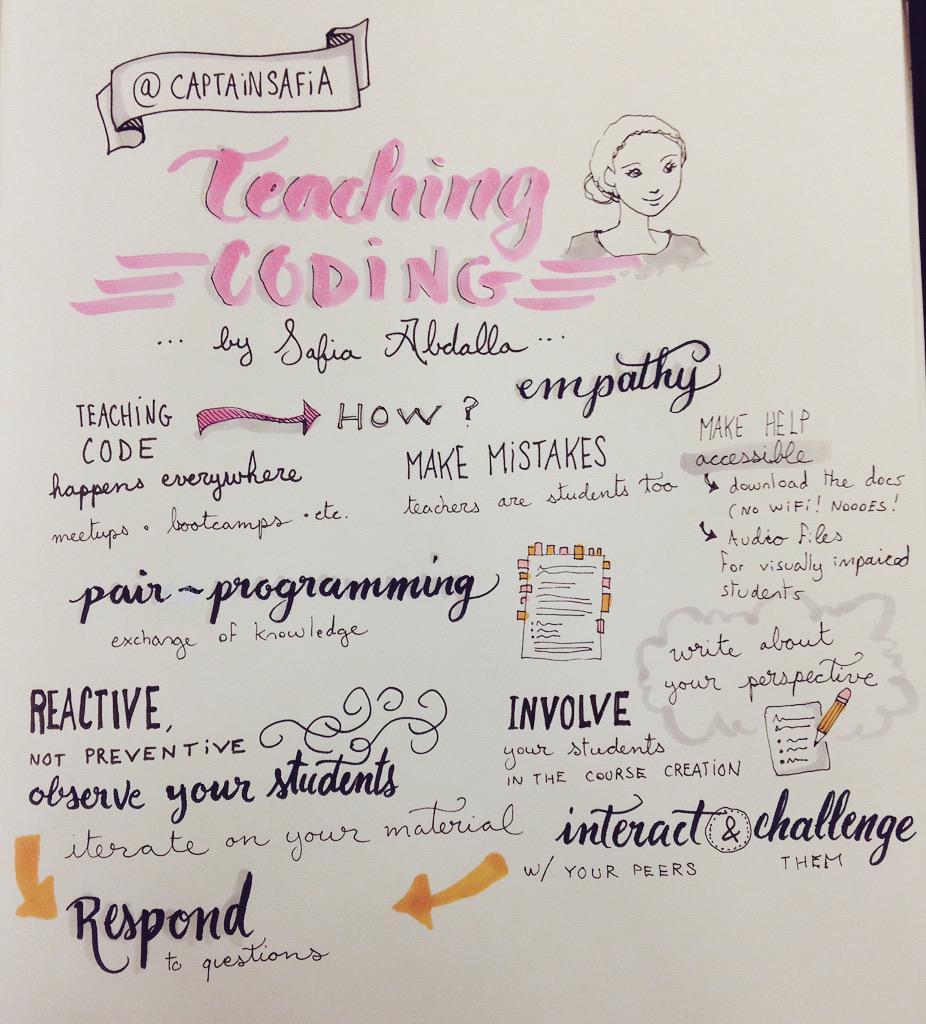 @ CAPTAINSAFIA
Teaching
CODING
... by Safia Abdalla ...
empathy
TEACHING
CODE
HOW ?
happens everywhere
meetups • bootcamps • etc.
MAKE MISTAKES
teachers are students too
MAKE HELP
accessible
download the docs
(NO WIFI! NOOOES!
AUDIO FILES
FOR visually impaired
students
pair - programming
exchange of knowledge
write about
your perspective
REACTIVE,
NOT PREVENTIVE
observe your students
iterate on your material
INVOLVE
your students
IN THE COURSE CREATION
interact & challenge
W/ YOUR PEERS
THEM
Respond
to questions